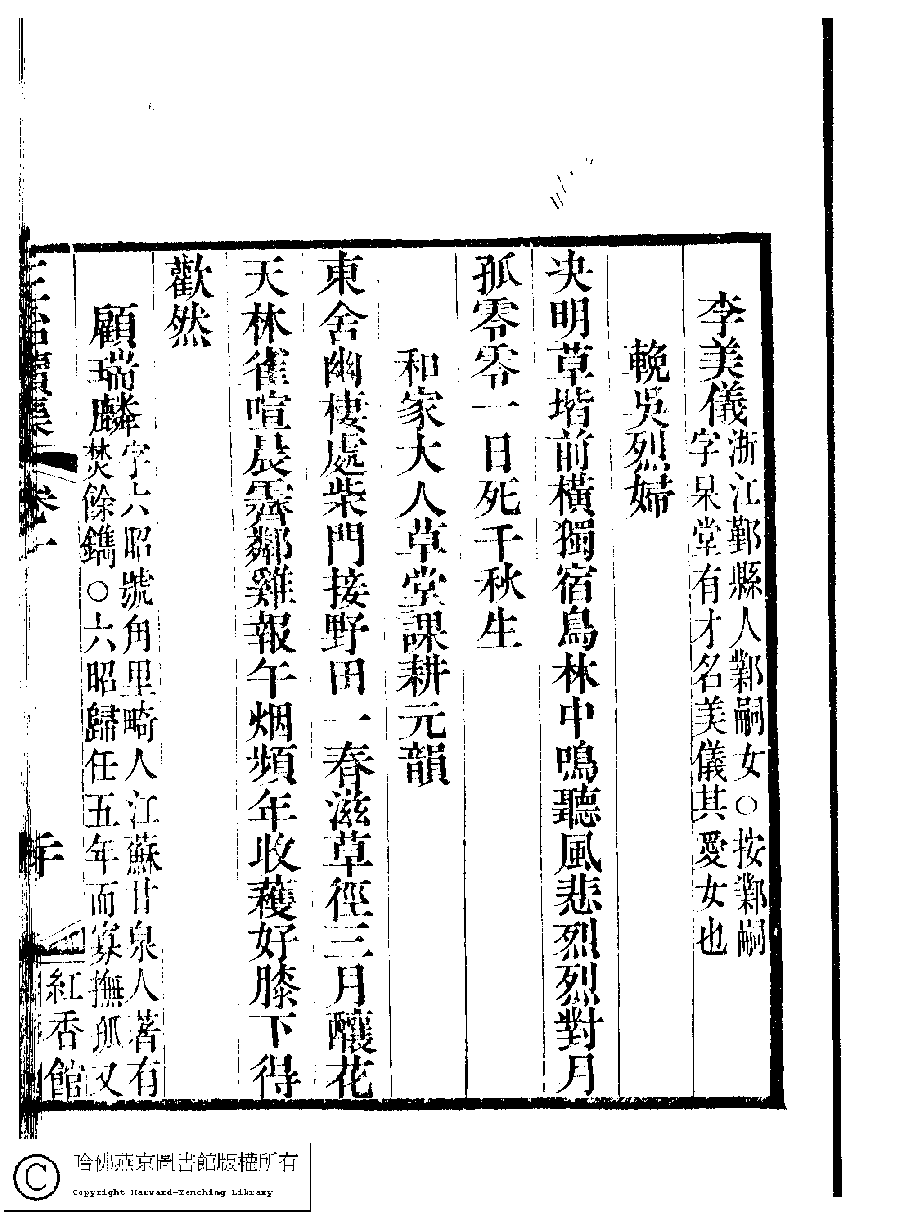 李美儀浙江鄞縣人鄴嗣女○按鄴嗣
字杲堂有才名美儀其愛女也
輓吳烈婦
决明草堦前橫獨宿鳥林中鳴聽風悲烈烈對月
孤零零一日死千秋生
和家大人草堂課耕元韻
東舍幽棲處柴門接野田一春滋草徑三月釀花
天林雀喧晨霽鄰雞報午烟頻年收穫好膝下得
歡然
顧瑞麟字六昭號角里畸人江蘇甘泉人著有
焚餘鐫○六昭歸任五年而寡撫孤又
卷一
二十
紅香館
哈佛燕京圖書館版權所有
Copyright Harvard-Yenching Library